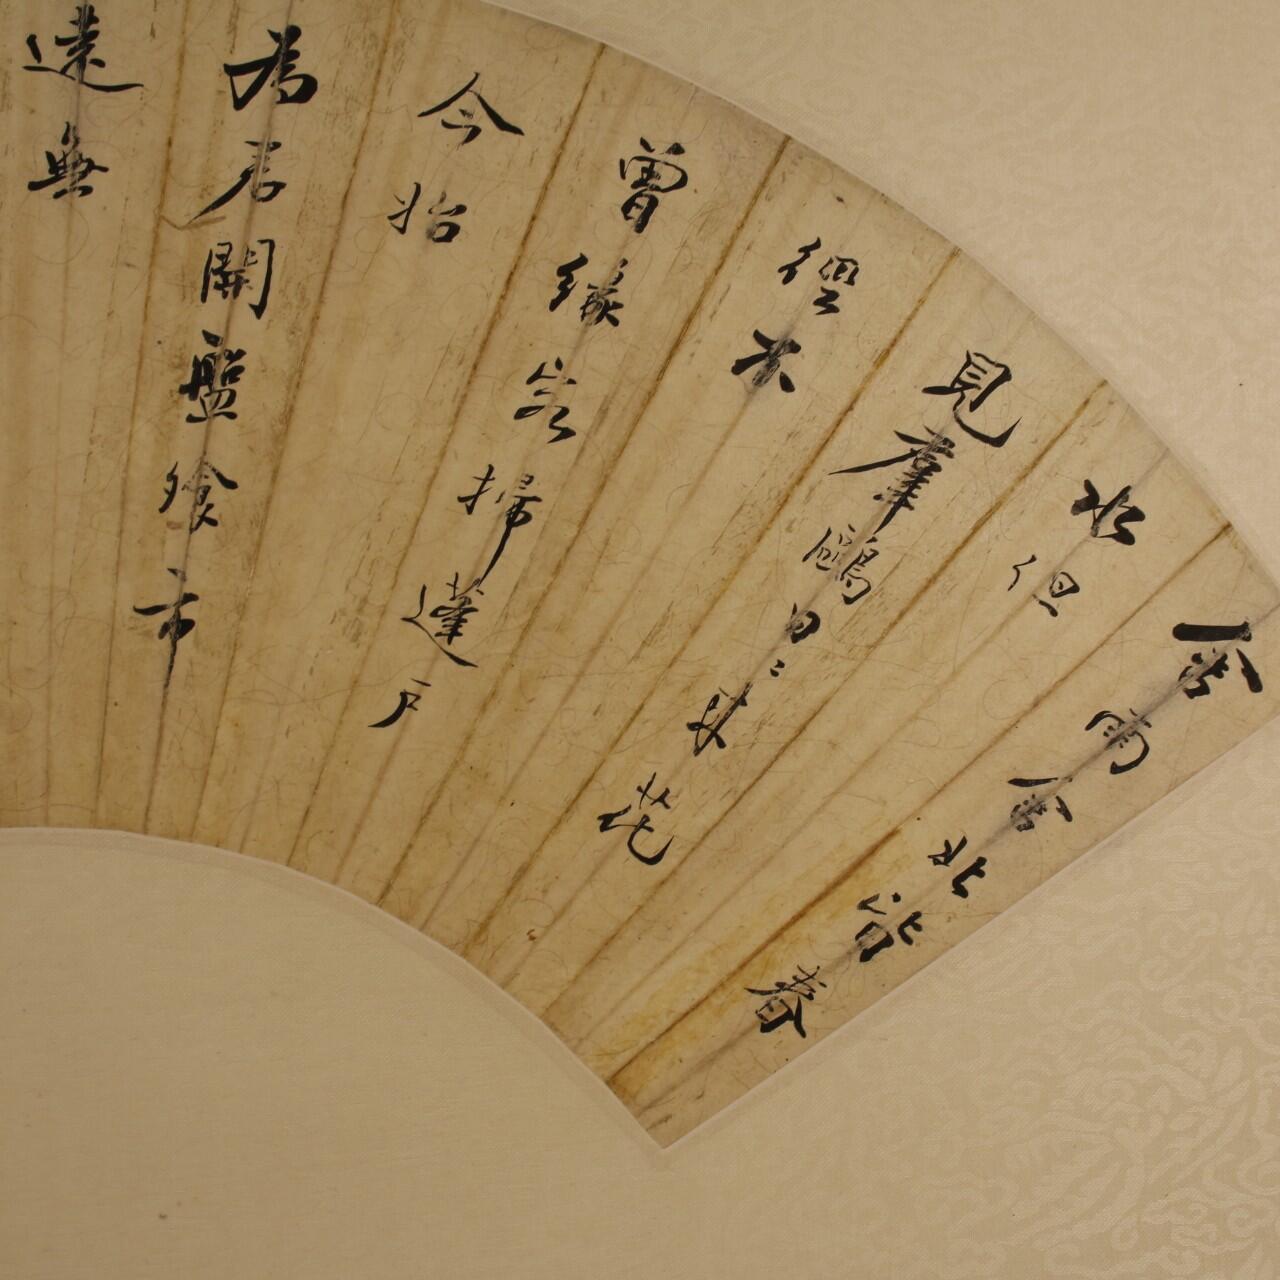 舍南舍北皆春
水但
見羣鷗日〻來花
徑不
曾緣客掃蓬戶
今始
為君開盤飱市
遠無